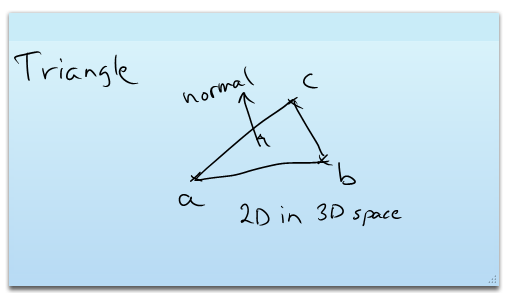 Triangle
normal
c
a
b
2D in 3D space